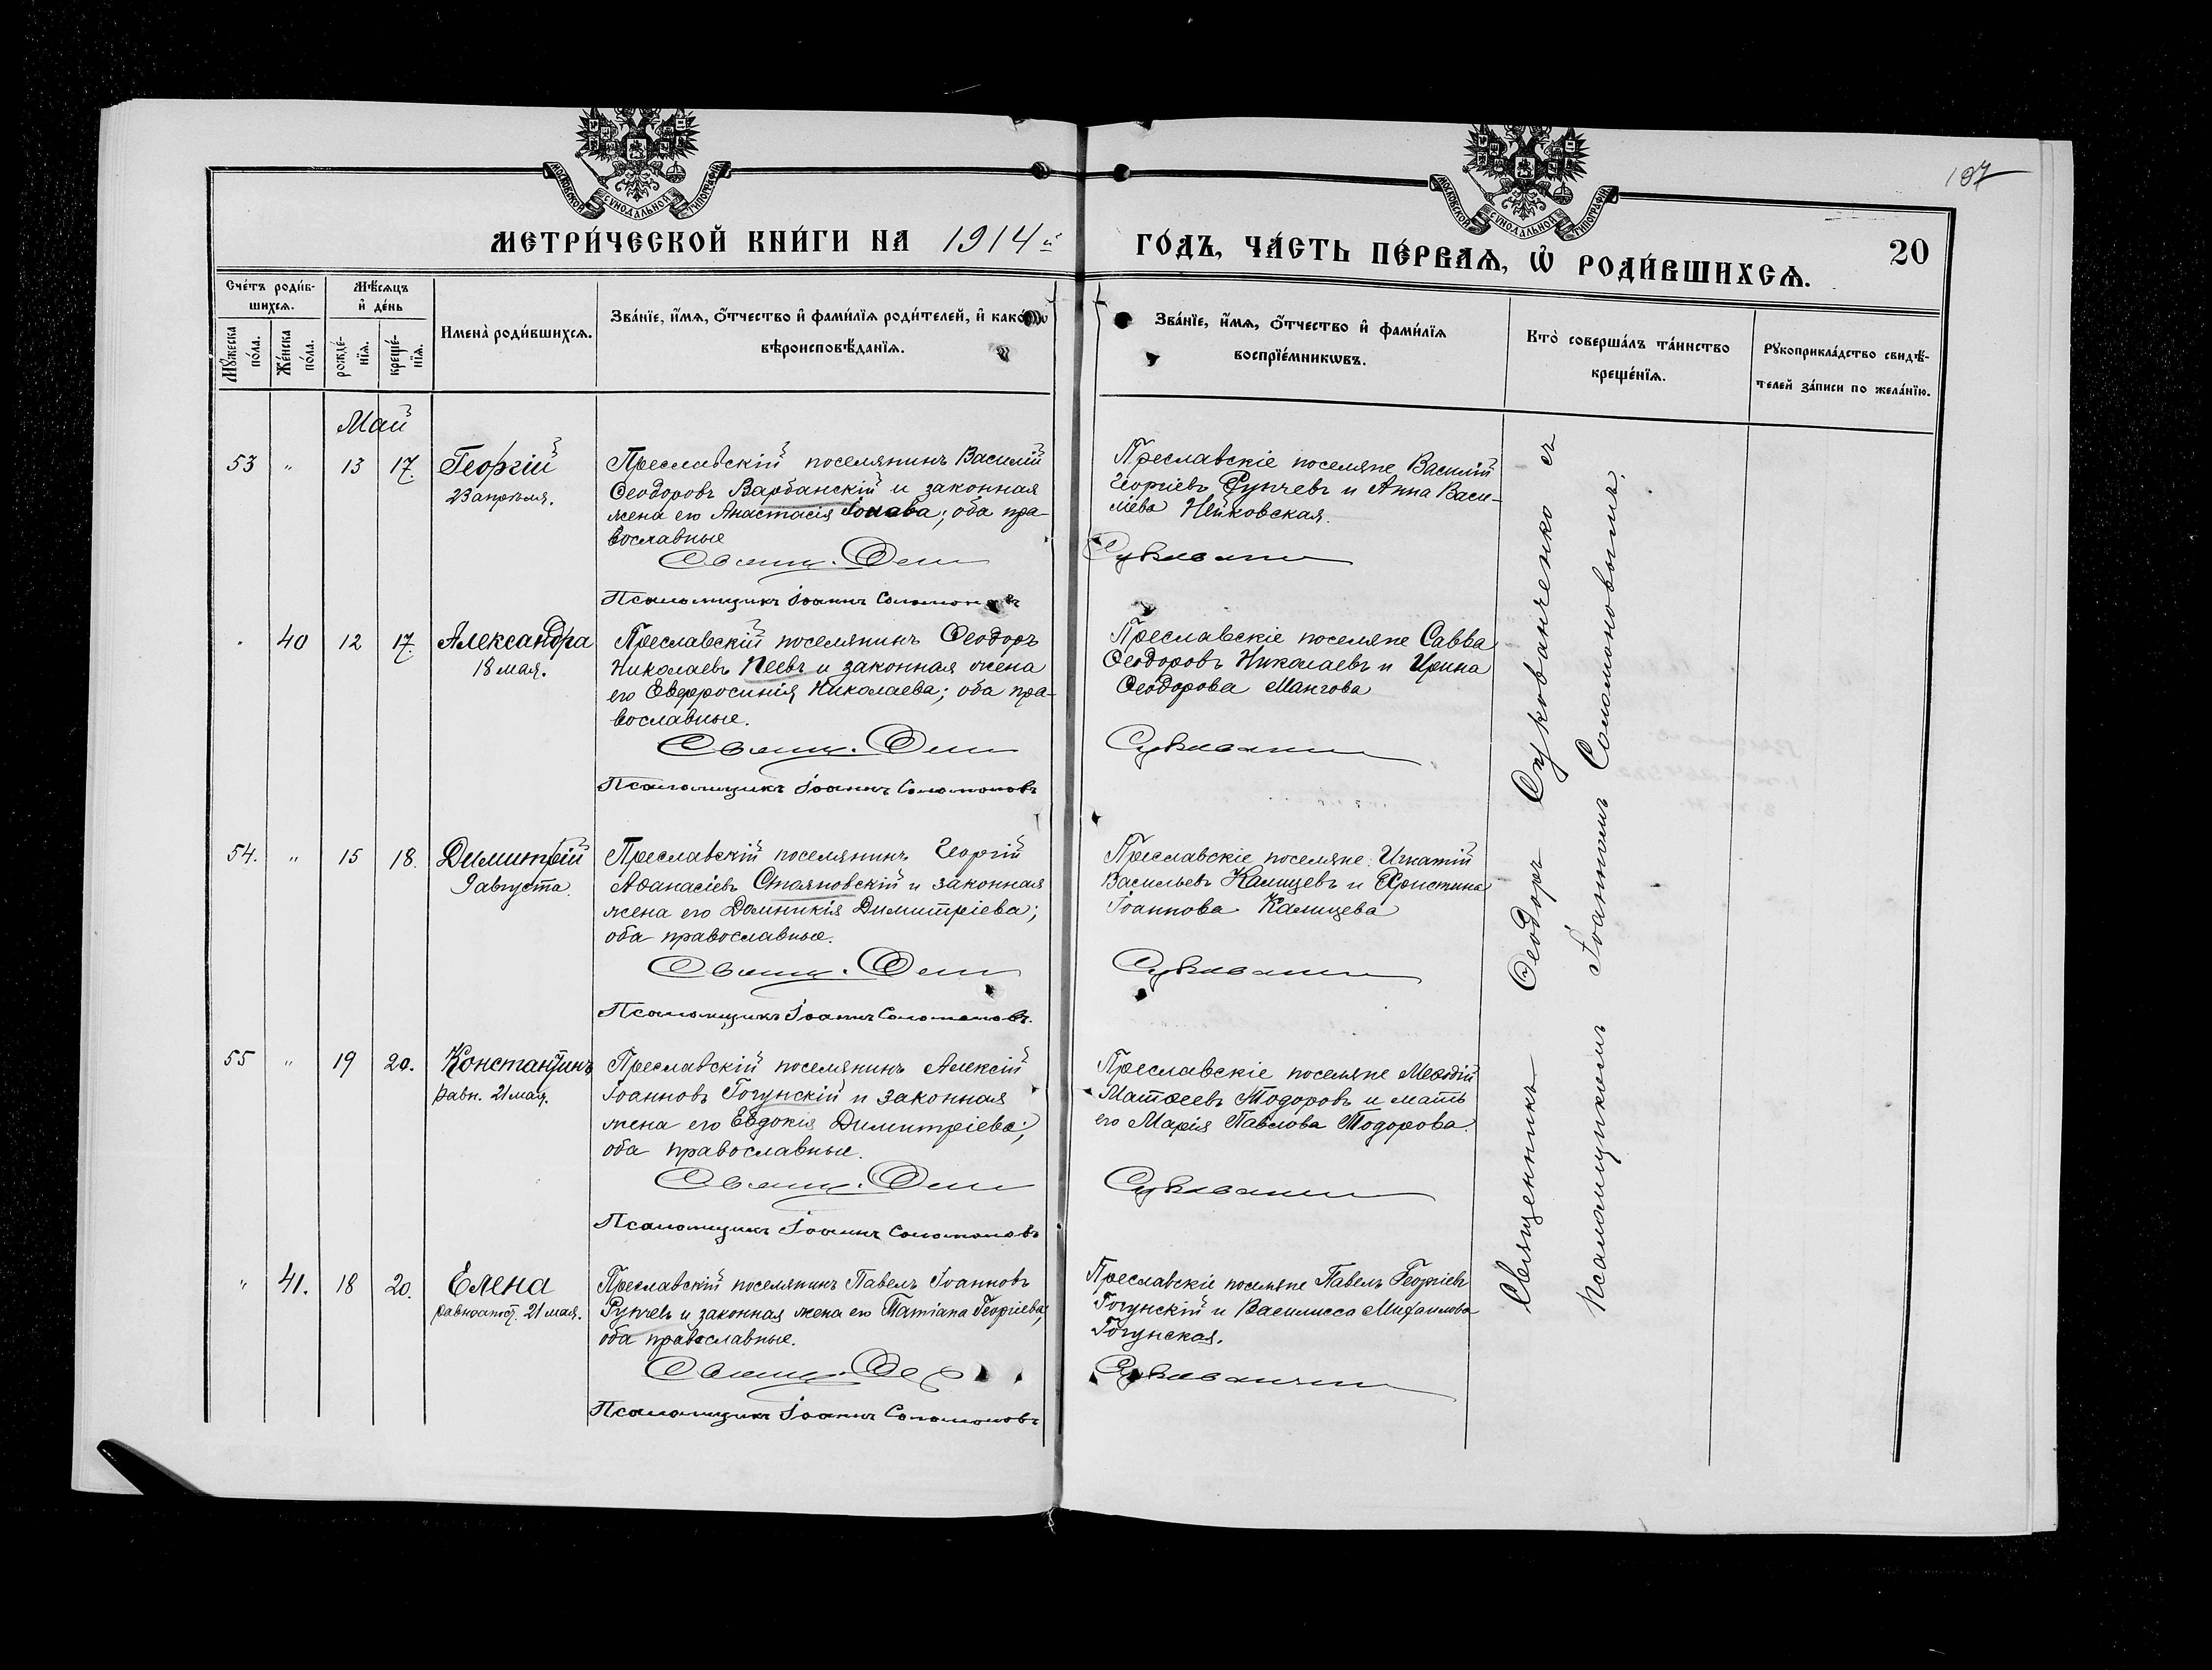 МОСКОВСКОЙ СУНОДАЛЬНОЙ ТИПОГРАФІИ
МОСКОВСКОЙ СУНОДАЛЬНОЙ ТИПОГРАФІИ
197
МЕТРИ́ЧЕСКОЙ КНИ́ГИ НА 1914й
ГО́ДЪ, ЧА́СТЬ ПЕ́РВАѦ, Ѡ҆ РОДИ́ВШИХСѦ.
20
Сче́тъ роди́в-
шихсѧ.
Мꙋ́жеска
по́ла.
Же́нска
по́ла.
Мѣ́сѧцъ
и҆ де́нь
рожде́-
нїѧ.
креще́-
нїѧ.
Имена̀ роди́вшихсѧ.
Зва́нїе, и҆́мѧ, ѻ҆́тчество и҆ фами́лїѧ роди́телей, и҆ како́гѡ
вѣроисповѣ́данїѧ.
Зва́нїе, и҆́мѧ, ѻ҆́тчество и҆ фами́лїѧ
воспрїе́мникѡвъ.
Кто̀ соверша́лъ та́инство
креще́нїѧ.
Рꙋкоприкла́дство свидѣ́-
телей за́писи по жела́нїю.
Май
53 " 13 17. Георгій
23 апрѣля.
Преславскій поселянинъ Василій
Ѳеодоровъ Варбанскій и законная
жена его Анастасія Іонова; оба пра-
вославные
Свящ. Ѳеод.
Псаломщикъ Іоаннъ Соломоновъ
Преславскіе поселяне Василій
Георгіевъ Рунчевъ и Анна Васи-
ліева Нейковская.
Сукованченко
" 40 12 17. Александра
18 мая.
Преславскій поселянинъ Ѳеодоръ
Николаевъ Пеевъ и законная жена
его Евфросинія Николаева; оба пра-
вославные.
Свящ. Ѳеод.
Псаломщикъ Іоаннъ Соломоновъ
Преславскіе поселяне Савва
Ѳеодоровъ Николаевъ и Ирина
Ѳеодорова Мангова
Сукованченко
54. " 15 18. Димитрій
9 августа.
Преславскій поселянинъ Георгій
Аѳанасіевъ Стояновскій и законная
жена его Домникія Димитріева;
оба православные.
Свящ. Ѳеод.
Псаломщикъ Іоаннъ Соломоновъ.
Преславскіе поселяне: Игнатій
Васильевъ Калицевъ и Христина
Іоаннова Калицева
Сукованченко
55 " 19 20. Константинъ
равн. 21 мая.
Преславскій поселянинъ Алексій
Іоанновъ Гогунскій и законная
жена его Евдокія Димитріева;
оба православные.
Свящ. Ѳеод.
Псаломщикъ Іоаннъ Соломоновъ
Преславскіе поселяне Меѳодій
Матѳеевъ Тодоровъ и мать
его Марія Павлова Тодорова.
Сукованченко
" 41. 18 20. Елена
равноапост. 21 мая.
Преславскій поселянинъ Павелъ Іоанновъ
Рунчевъ и законная жена его Татіана Георгіева;
оба православные.
Свящ. Ѳеод.
Псаломщикъ Іоаннъ Соломоновъ
Преславскіе поселяне Павелъ Георгіевъ
Гогунскій и Василисса Михаилова
Гогунская.
Сукованченко
Священникъ Ѳеодоръ Сукованченко съ
псаломщикомъ Іоанномъ Соломоновымъ.